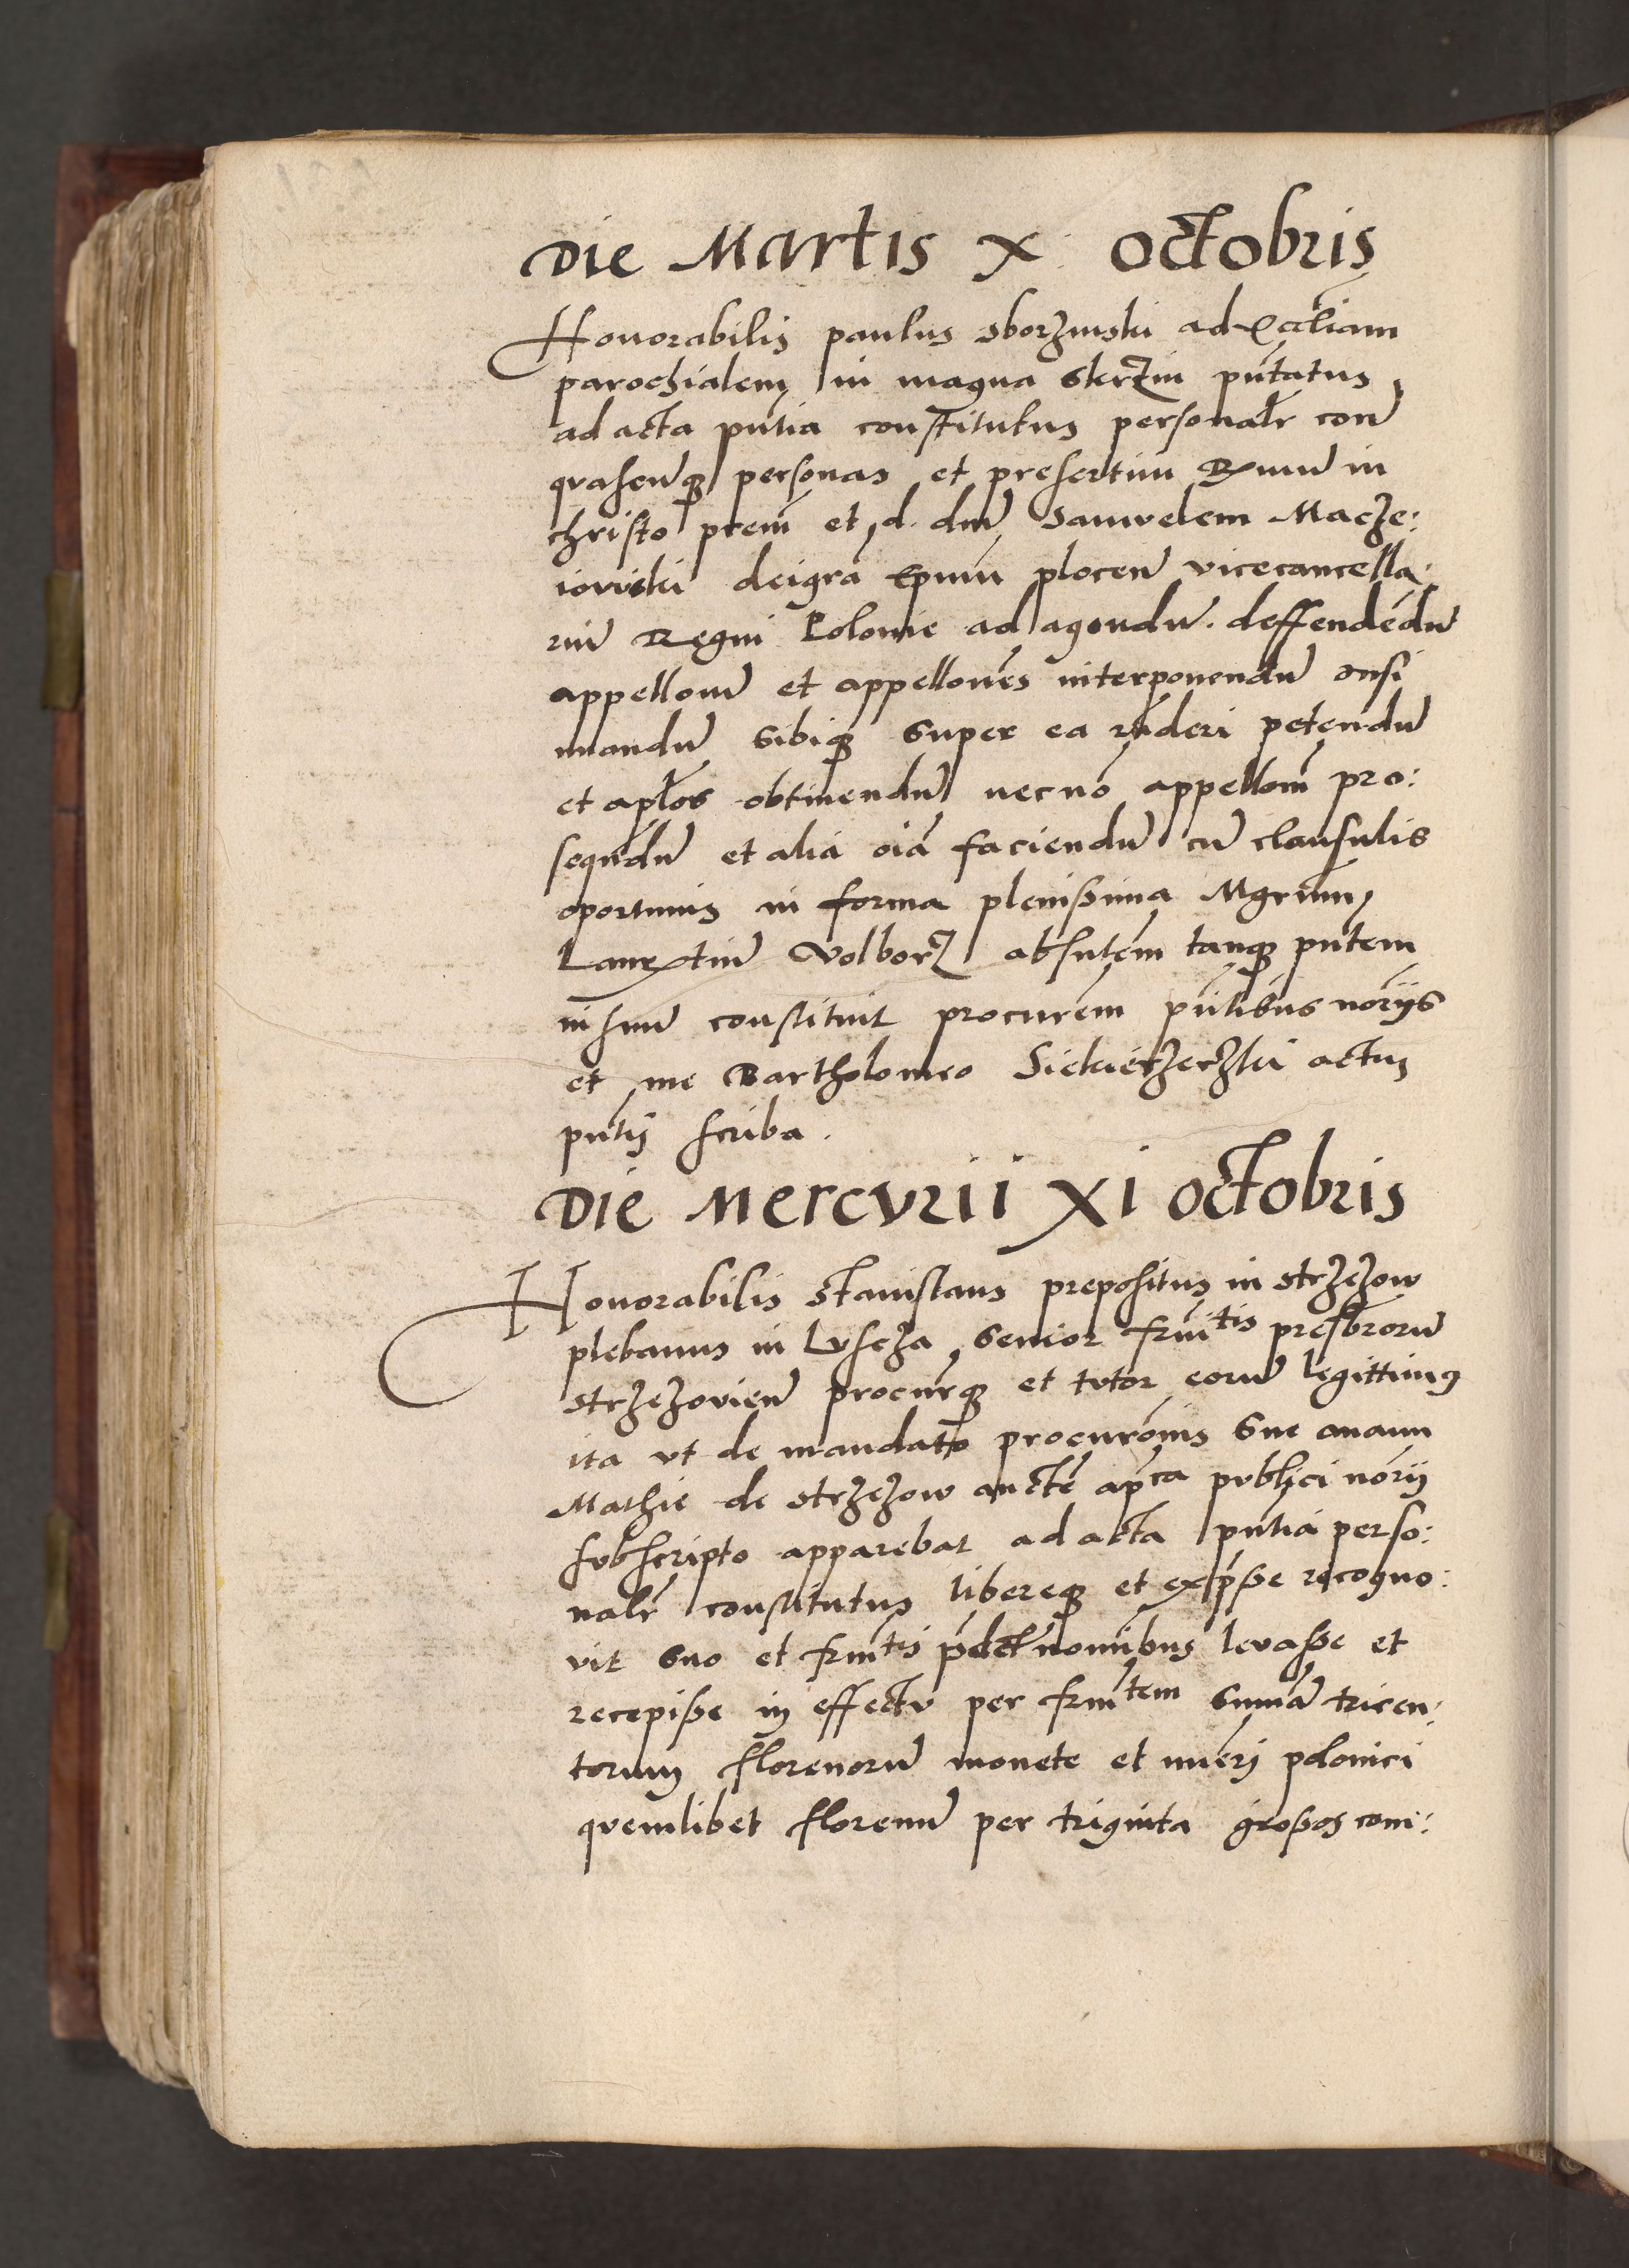 Die Martis x octobris
Honorabilis paulus sborzinski ad Eccliam
parochialem in magna skrzin pñtatus
ad acta pñtia constitutus personalr̃ con̄
quascunq; personas et presertim R̃mum in
christo prem̄ et d. dnm̄ Samuelem Macze:
iowski dei gr̃a Ep̃um plocen̄ vicecancella:
riū Regni Polonie ad agendū. deffendēdū
appellonū et appellones̄ interponendū
nuandū sibiq; super ea rñderi petendū
et apl̃os obtinendū necnō appellonē pro:
sequēdū et alia oīa faciendū cū clausulis
oportunis in forma plenissima Mgrūm
Laurētiū Wolborz absn̄tem tanq; pñtem
in suū constituit procurem̄ pñtibus nōriis
et me Bartholomeo Siekierzeczki actus
pñtis scriba.
Die Mercurii xi octobris
Honorabilis stanislaus prepositus in strzezow
plebanus in Lvscza, senior frnitis presbr̃orū
strzezovien̄ procurq; et tvtor eorū legittimus
ita vt de mandato procurōnis sue manu
Mathie de strzezow aucte ap̃ca pvblici nōrii
svbscripto apparebat ad acta pñtia perso:
nalr̃ constitutus libereq; et exp̃sse recogno:
vit suo et frnitis p̃dct̃ noīnibus levasse et
recepisse in effectv per frnitem sum̄ā tricen:
torum florenorū monete et nūeri polonici
quemlibet florenū per triginta grossos com: